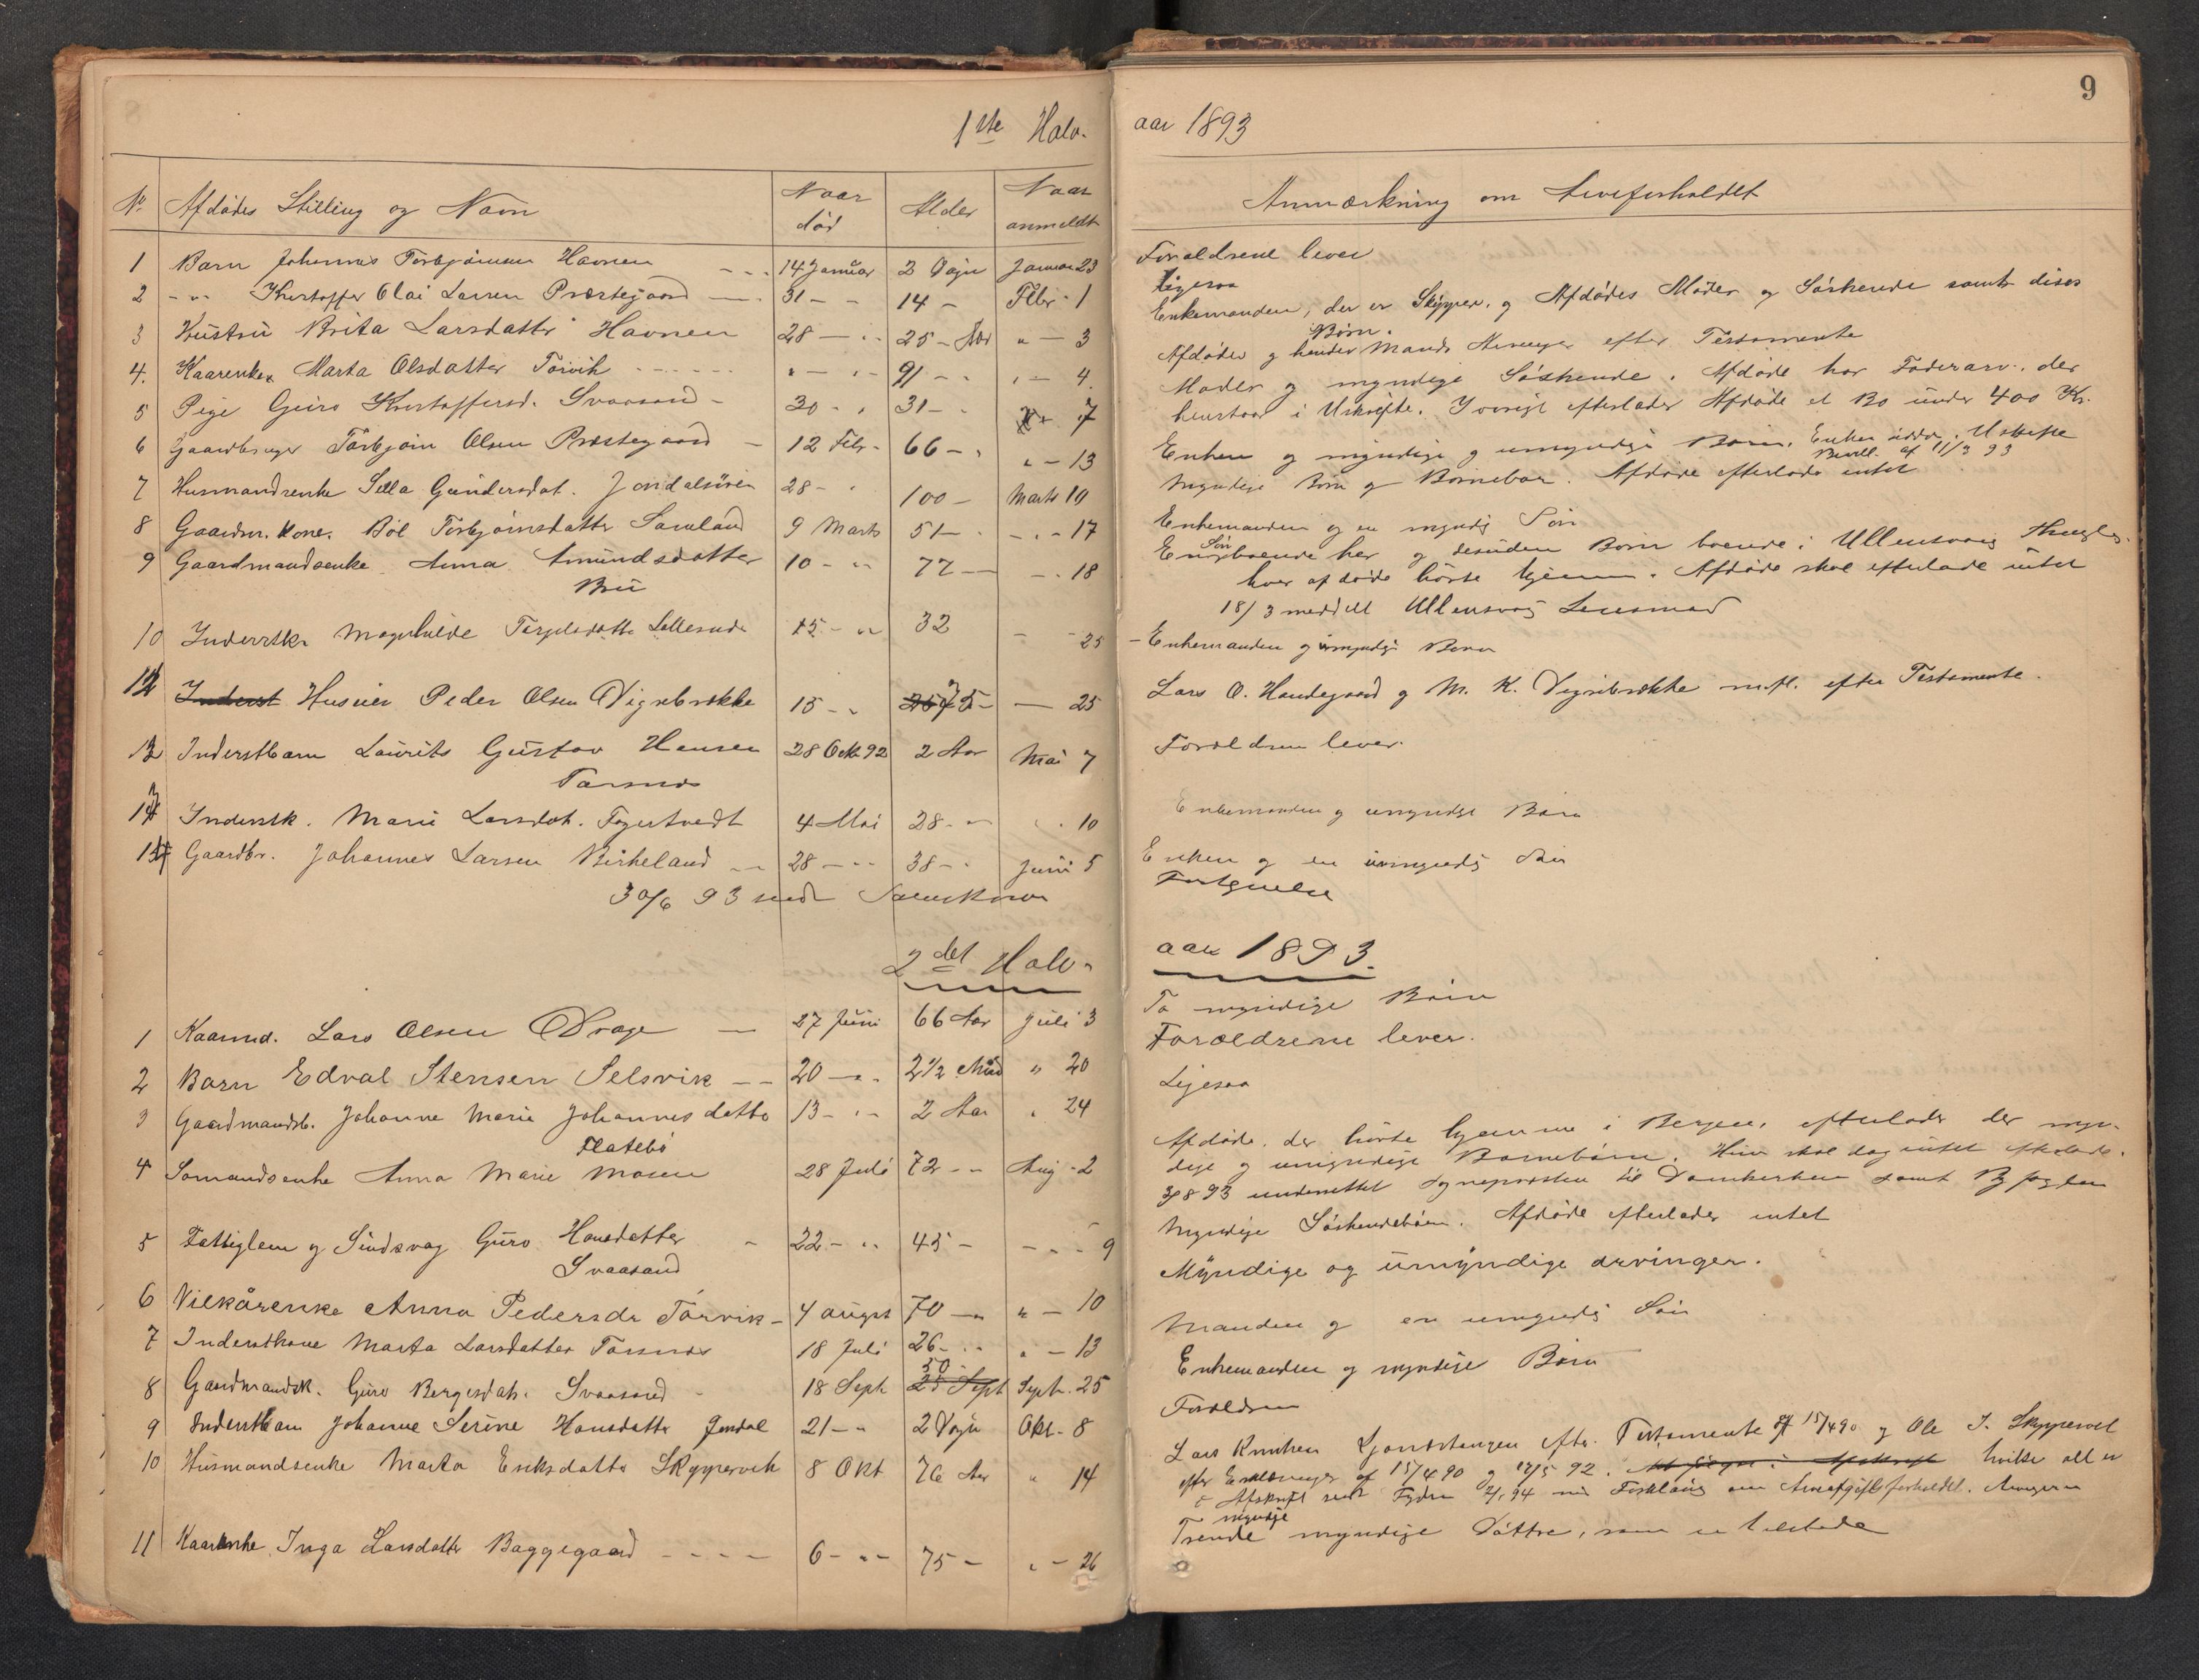 9
1ste Halv-
aar 1893
No.
Afdødes Stilling og Navn
Naar død
Alder
Naar anmeldt
Anmærkning om Arveforholdet
1 Barn Johannes Torbjørnsen Havnen - - - 14 Januar 2 Dage Januar 23
Forældrene lever
2 - " - Kristoffer Olai Larsen Præstegaard 31 - - 14 - Febr - 1
Ligesaa
3 Hustru Brita Larsdatter Havnen 28 — " - 25 - Aar " — 3
Enkemanden, der er Skipper, og Afdødes Moder og Søskende samt disses
Børn.
4. Kaarenke Marta Olsdatter Torvik - - - - - " — " - 91 - - " — 4.
Afdødes og hendes Mands Arvinger efter Testamente
5 Pige Guro Kristoffersd. Svaasand - 30 - " 31 - - 7
Moder og myndige Søskende. Afdøde har Faderarv, der
henstaar i Uskifte. Iøvrigt efterlader Afdøde et Bo under 400 Kr.
6 Gaardbruger Torbjørn Olsen Præstegaard — 12 Febr - 66 - " " — 13
Enken og myndige og umyndige Børn. Enken sidder i Uskifte
Bevill. af 11/3 93
7 Husmandsenke Sella Gundersdat. Jondalsøren 28 - " 100 — Marts 10
Myndige Børn og Børnebørn. Afdøde efterlader intet
8 Gaardm. Kone. Bøl Torbjørnsdatter Samland 9 Marts 51 — - - " - 17
Enkemanden og en myndig Søn
9 Gaardmandsenke Anna Amundsdatter 10 - " 77 — — . 18
Bru
En Søn boende her og desuden Børn boende i Ullensvang Thingl.
hvor afdøde hørte hjemme. Afdøde skal efterlade intet
18/3 meddelt Ullensvang Lensmand
10 Inderstk. Magnhilde Torgilsdatter Lillesund 15 - " 32 — - 25
- Enkemanden og umyndige Børn
12 Inderst Husmd Peder Olsen Vignebrekke 15 - " 75 - — 25
Lars O. Handegaard og M. K. Vignebrekke m.fl. efter Testamente.
13 Inderstbarn Laurits Gustav Hansen 28 Okt 92 2 Aar Mai 7
Torsnes
Forældrene lever.
14 Inderstk. Marie Larsdat. Fagertvedt 4 Mai 28 - " " . 10
Enkemanden og umyndige Børn
15 Gaardbr. Johannes Larsen Birkeland — 28 — " 38 - - Juni 5
Enken og en umyndig Søn
30/6 93 sendt Sorenskriver
2det Halv-
aar 1893.
1 Kaarmd. Lars Olsen Drage — 27 Juni 66 Aar Juli 3
To myndige Børn
2 Barn Edval Stensen Selsvik — - 20 — " 2 1/2 Mnd " 20
Forældrene lever.
3 Gaardmandsb. Johanne Marie Johannesdatter 13 - " - 2 Aar " 24
Flatebø
Ligesaa
4 Sømandsenke Anna Marie Mosen 28 Juli 72 - - Aug - 2
Afdøde, der hørte hjemme i Bergen, efterlader der myn-
dige og umyndige Børnebørn. Hun skal dog intet efterlade.
3/8 93 underrettet Sogneprosten til Domkirken samt Byfogden
5 Fattiglem og Sindsvag Guro Hansdatter - 22 - " 45 - - - - 9
Svaasand
Myndige Søskendebørn. Afdøde efterlader intet
6 Vilkårenke Anna Pedersdr Torvik - 4 august 70 — " " — 10
Myndige og umyndige arvinger.
7 Inderstkone Marta Larsdatter Torsnes 18 Juli 26 - " - " — 13
Manden og en umyndig Søn
8 Gaardmandsk. Guro Bergesdat. Svaasand - 18 Sept 50 - 25 Sept Septr. 25
Enkemanden og myndige Børn
9 Inderstbarn Johanne Serine Hansdatter Jondal 21 - " 2 Dage Okt - 8
Forældrene
10 Husmandsenke Marta Eriksdatter Skyppervik 8 Okt 76 Aar " 14
Lars Knutsen efter Testamente af 15/4 90 og Ole I. Skyppervik
efter Erklæringer af 15/4 90 og 17/5 92. hvilke alt er
i Afskrift sendt Fogden 2/1 94 med Forklaring om Arveafgiftsforholdet. Arvingerne
myndige
11 Kaarenke Inga Larsdatter Baggegaard - - - — 6 - " - 75 — " — 26
Trende myndige Døttre, som er tilstede